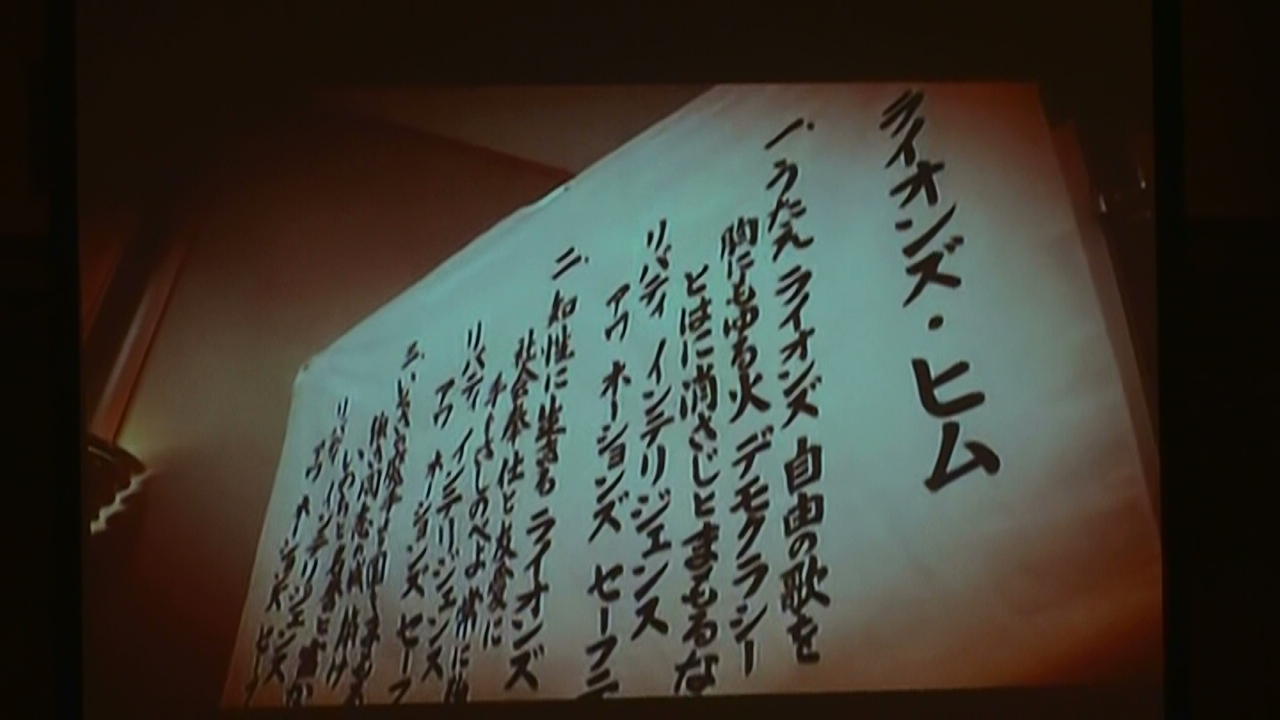 ライオンズ・ヒム
一. うたえ ライオンズ 自由の歌を
胸にもゆる火 デモクラシー
とはに消さじとまもるな
リバティ インテリジェンス
アワ ネーションズ セーフテ
二. 知性に生きる ライオンズ
社会奉仕と友愛に
手をさしのべよ 常に
リバティ インテリジェンス
アワ ネーションズ セーフ
三.
リバティ インテリジェンス
アワ ネーションズ セー